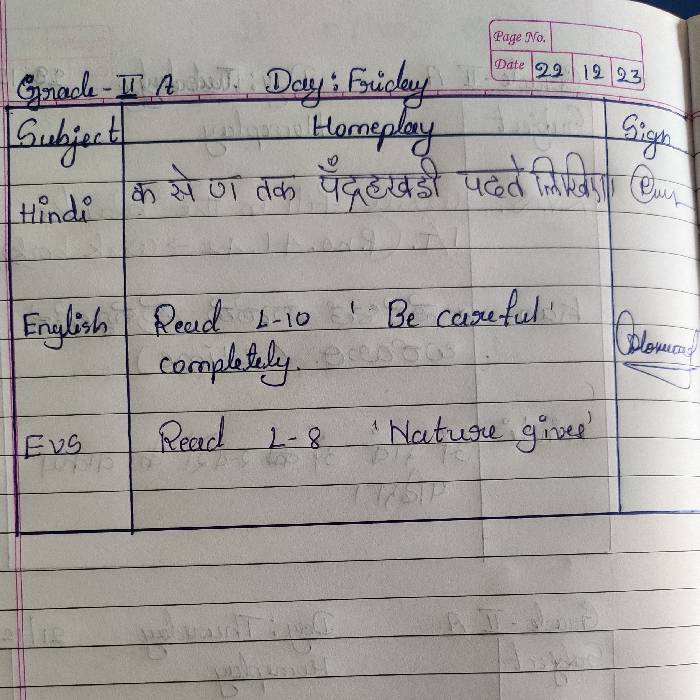 Page No.
Date 22 12 23
Grade - II A Day : Friday
Subject Homeplay Sign
Hindi क से ण तक पढते लिखिए।
English Read L-10 ' Be careful'
completely.
EVS Read L-8 'Nature gives'